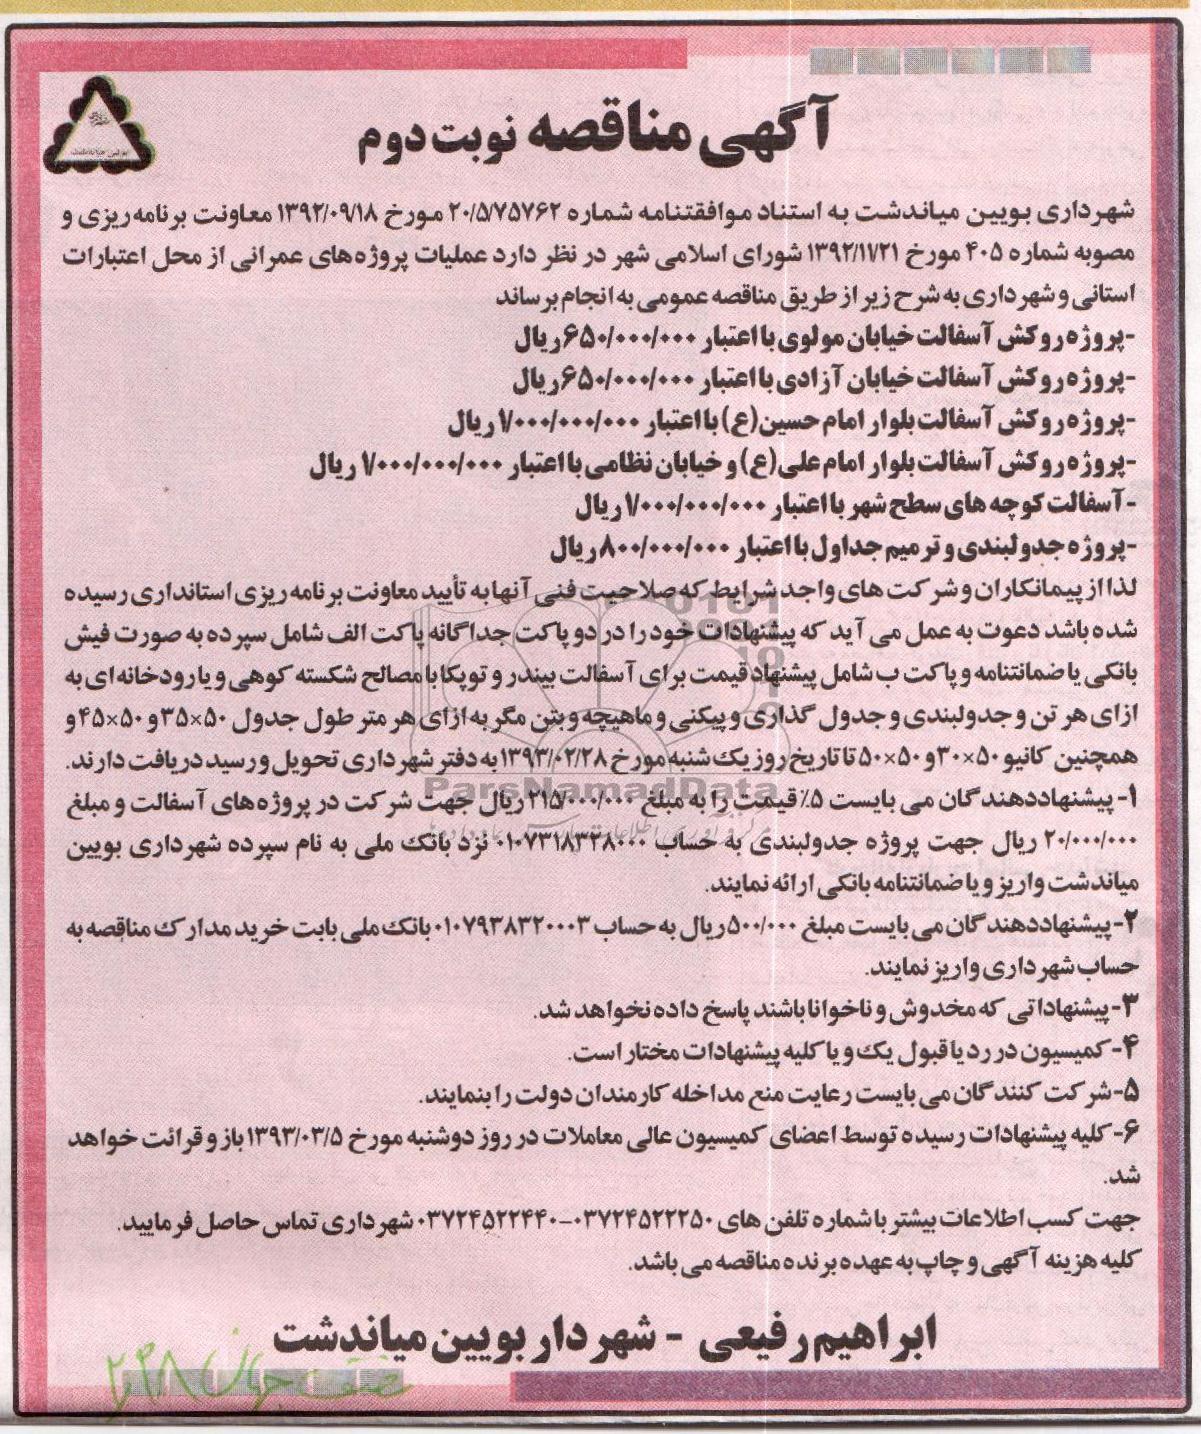 آگهی مناقصه نوبت دوم
شهرداری بویین میاندشت به استناد موافقتنامه شماره ۲۰/۵/۷۵۷۶۲ مورخ ۱۳۹۲/۰۹/۱۸ معاونت برنامه ریزی و
مصوبه شماره ۴۰۵ مورخ ۱۳۹۲/۱۱/۲۱ شورای اسلامی شهر در نظر دارد عملیات پروژه های عمرانی از محل اعتبارات
استانی و شهرداری به شرح زیر از طریق مناقصه عمومی به انجام برساند
-پروژه روکش آسفالت خیابان مولوی با اعتبار ۶۵۰/۰۰۰/۰۰۰ ریال
-پروژه روکش آسفالت خیابان آزادی با اعتبار ۶۵۰/۰۰۰/۰۰۰ ریال
-پروژه روکش آسفالت بلوار امام حسین (ع) با اعتبار ۱/۰۰۰/۰۰۰/۰۰۰ ریال
-پروژه روکش آسفالت بلوار امام علی (ع) و خیابان نظامی با اعتبار ۱/۰۰۰/۰۰۰/۰۰۰ ریال
-آسفالت کوچه های سطح شهر با اعتبار ۱/۰۰۰/۰۰۰/۰۰۰ ریال
-پروژه جدولبندی و ترمیم جداول با اعتبار ۸۰۰/۰۰۰/۰۰۰ ریال
لذا از پیمانکاران و شرکت های واجد شرایط که صلاحیت فنی آنها به تأیید معاونت برنامه ریزی استانداری رسیده
شده باشد دعوت به عمل می آید که پیشنهادات خود را در دو پاکت جداگانه پاکت الف شامل سپرده به صورت فیش
بانکی یا ضمانتنامه و پاکت ب شامل پیشنهاد قیمت برای آسفالت بیندر و توپکا با مصالح شکسته کوهی و یا رودخانه ای به
ازای هر تن و جدولبندی و جدول گذاری و پیکنی و ماهیچه و بتن مگر به ازای هر متر طول جدول ۵۰×۳۵ و ۵۰×۴۵ و
همچنین کانیو ۵۰×۳۰ و ۵۰×۵۰ تا تاریخ روز یک شنبه مورخ ۱۳۹۳/۰۲/۲۸ به دفتر شهرداری تحویل و رسید دریافت دارند.
۱- پیشنهاددهندگان می بایست ۵٪ قیمت را به مبلغ ۲۱۵/۰۰۰/۰۰۰ ریال جهت شرکت در پروژه های آسفالت و مبلغ
۲۰/۰۰۰/۰۰۰ ریال جهت پروژه جدولبندی به حساب ۰۱۰۷۳۱۸۳۲۸۰۰۰ نزد بانک ملی به نام سپرده شهرداری بویین
میاندشت واریز و یا ضمانتنامه بانکی ارائه نمایند.
۲- پیشنهاددهندگان می بایست مبلغ ۵۰۰/۰۰۰ ریال به حساب ۰۱۰۷۹۳۸۳۲۰۰۰۳ بانک ملی بابت خرید مدارک مناقصه به
حساب شهرداری واریز نمایند.
۳- پیشنهاداتی که مخدوش و ناخوانا باشند پاسخ داده نخواهد شد.
۴- کمیسیون در رد یا قبول یک و یا کلیه پیشنهادات مختار است.
۵- شرکت کنندگان می بایست رعایت منع مداخله کارمندان دولت را بنمایند.
۶- کلیه پیشنهادات رسیده توسط اعضای کمیسیون عالی معاملات در روز دوشنبه مورخ ۱۳۹۳/۰۳/۵ باز و قرائت خواهد
شد.
جهت کسب اطلاعات بیشتر با شماره تلفن های ۰۳۷۲۴۵۲۲۲۵۰-۰۳۷۲۴۵۲۲۴۴۰ شهرداری تماس حاصل فرمایید.
کلیه هزینه آگهی و چاپ به عهده برنده مناقصه می باشد.
ابراهیم رفیعی - شهردار بویین میاندشت
ParsNamadData